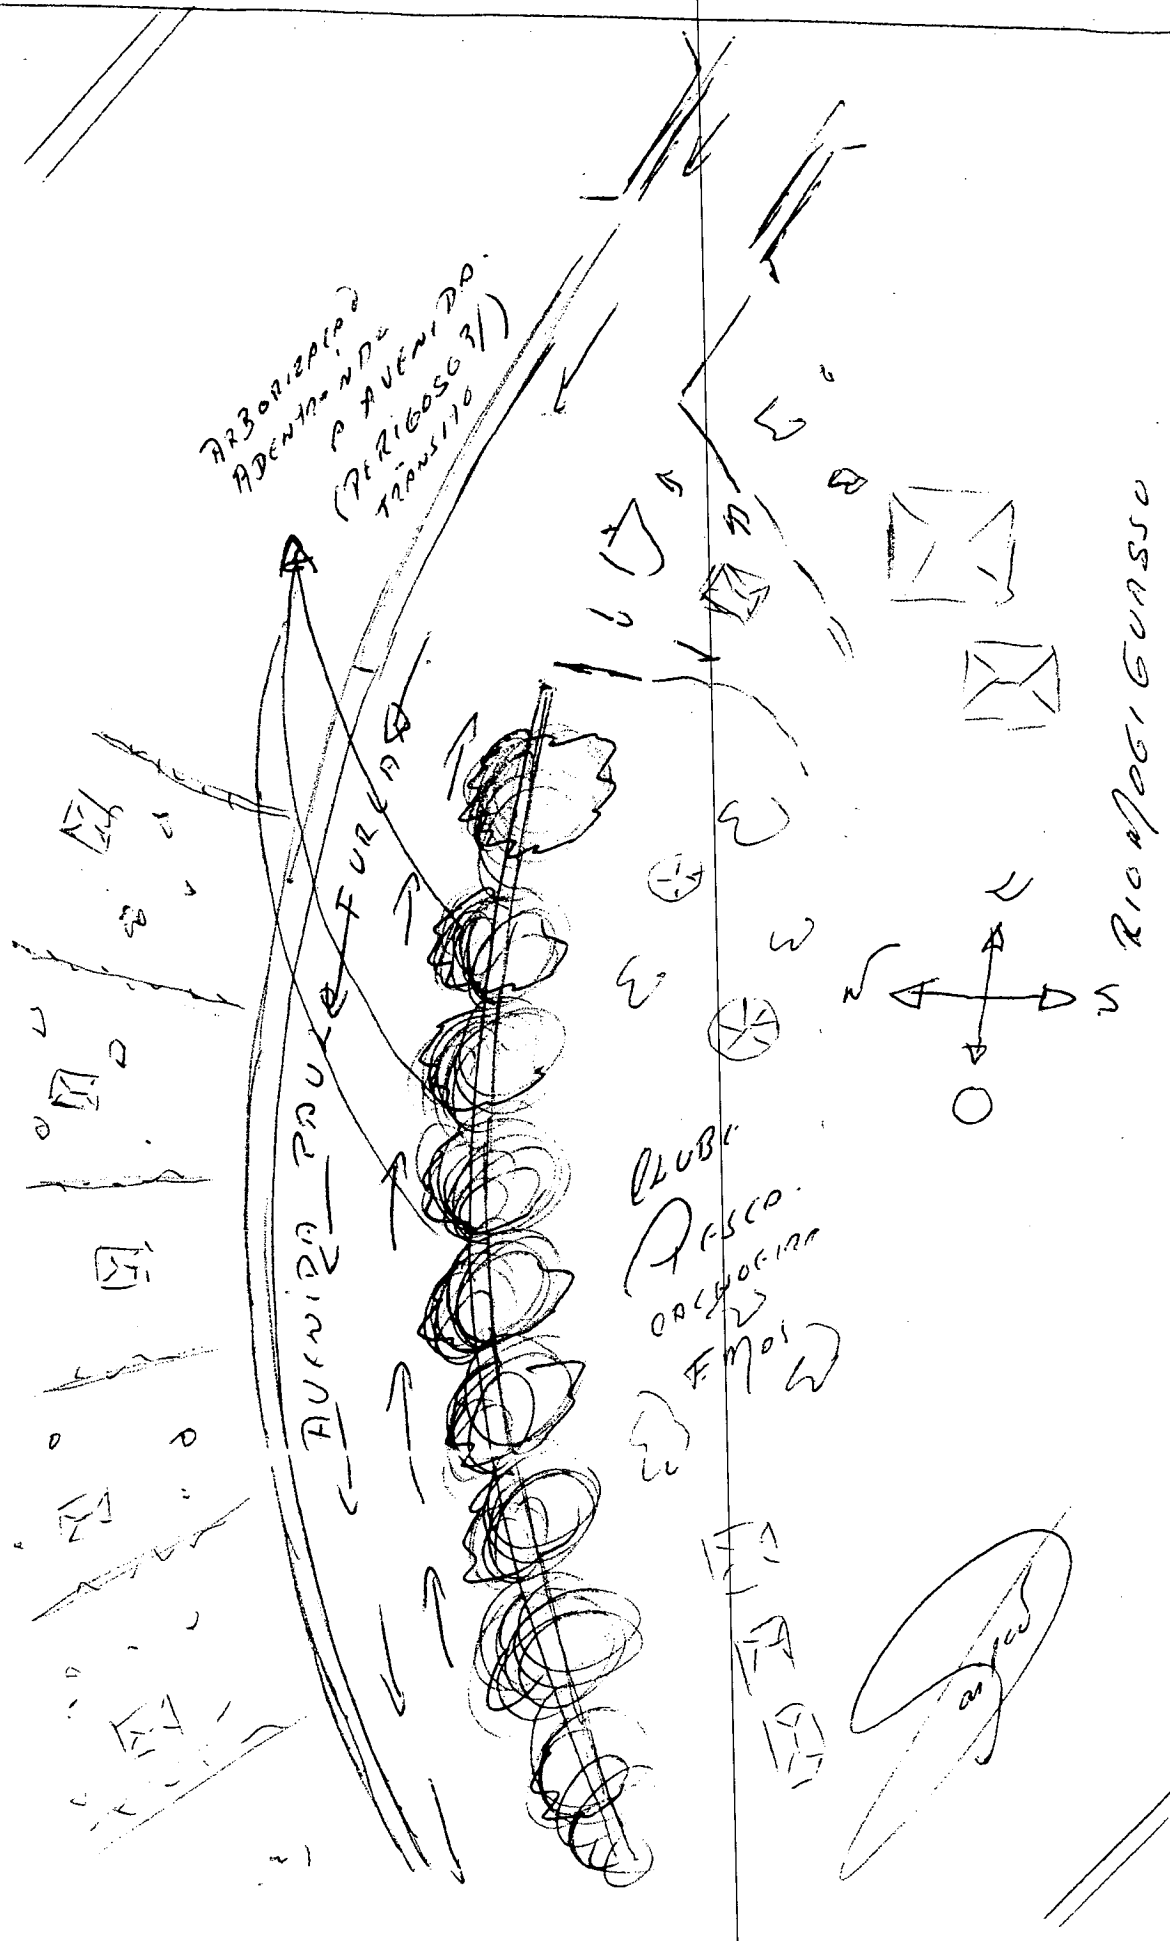 ARBORIZAÇÃO
ADENTRANDO
A AVENIDA.
(PERIGOSO P/)
TRÂNSITO
AVENIDA PAUL FURLAN
CLUBE
PESCA
CACHOEIRA
EMAS
N
S
L
O
RIO MOGI GUASSO